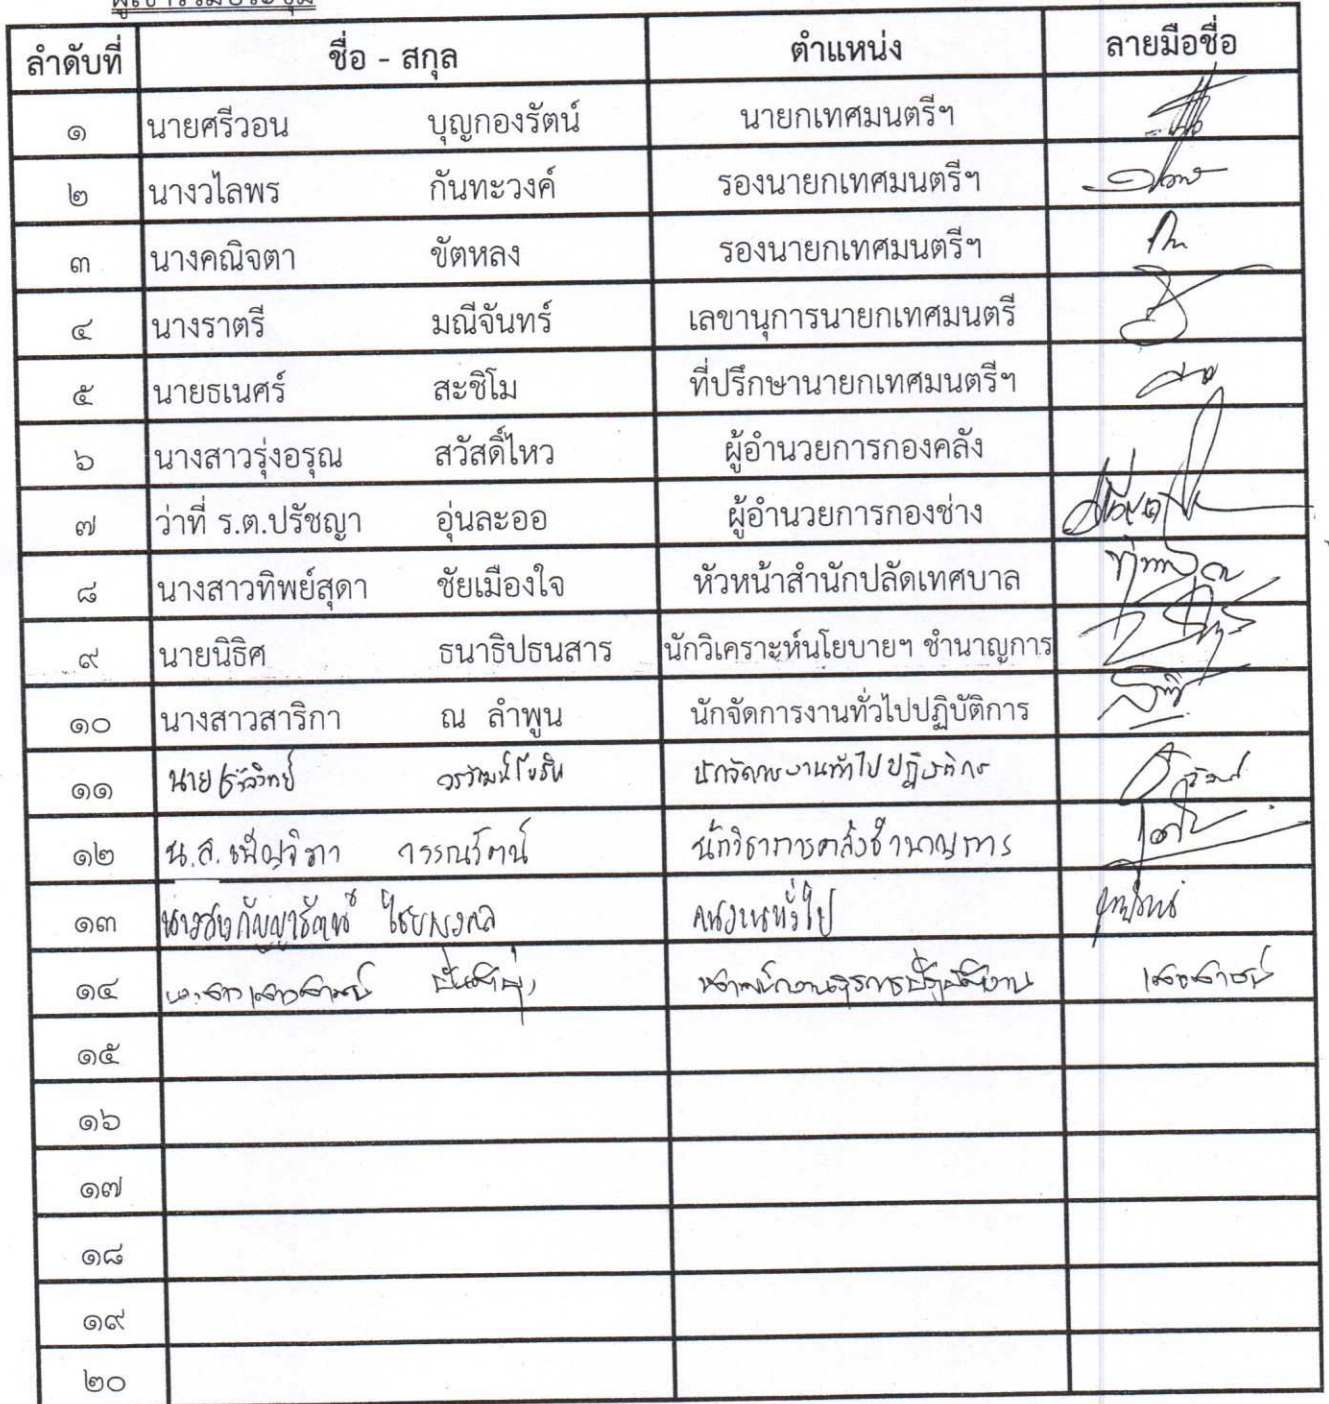 ผู้เข้าร่วมประชุม
ลำดับที่ ชื่อ - สกุล ตำแหน่ง ลายมือชื่อ
๑ นายศรีวอน บุญกองรัตน์ นายกเทศมนตรีฯ
๒ นางวไลพร กันทะวงค์ รองนายกเทศมนตรีฯ
๓ นางคณิจตา ขัตหลง รองนายกเทศมนตรีฯ
๔ นางราตรี มณีจันทร์ เลขานุการนายกเทศมนตรี
๕ นายธเนศร์ สะชิโม ที่ปรึกษานายกเทศมนตรีฯ
๖ นางสาวรุ่งอรุณ สวัสดิ์ไหว ผู้อำนวยการกองคลัง
๗ ว่าที่ ร.ต.ปรัชญา อุ่นละออ ผู้อำนวยการกองช่าง
๘ นางสาวทิพย์สุดา ชัยเมืองใจ หัวหน้าสำนักปลัดเทศบาล
๙ นายนิธิศ ธนาธิปธนสาร นักวิเคราะห์นโยบายฯ ชำนาญการ
๑๐ นางสาวสาริกา ณ ลำพูน นักจัดการงานทั่วไปปฏิบัติการ
๑๑ นาย นักจัดการงานทั่วไปปฏิบัติการ
๑๒ น.ส. เพ็ญจิตา วรรณรัตน์ นักวิชาการคลังชำนาญการ
๑๓ นางสาวกัญญารัตน์ ไชยมงคล คนงานทั่วไป
๑๔ นางสาว
๑๕
๑๖
๑๗
๑๘
๑๙
๒๐